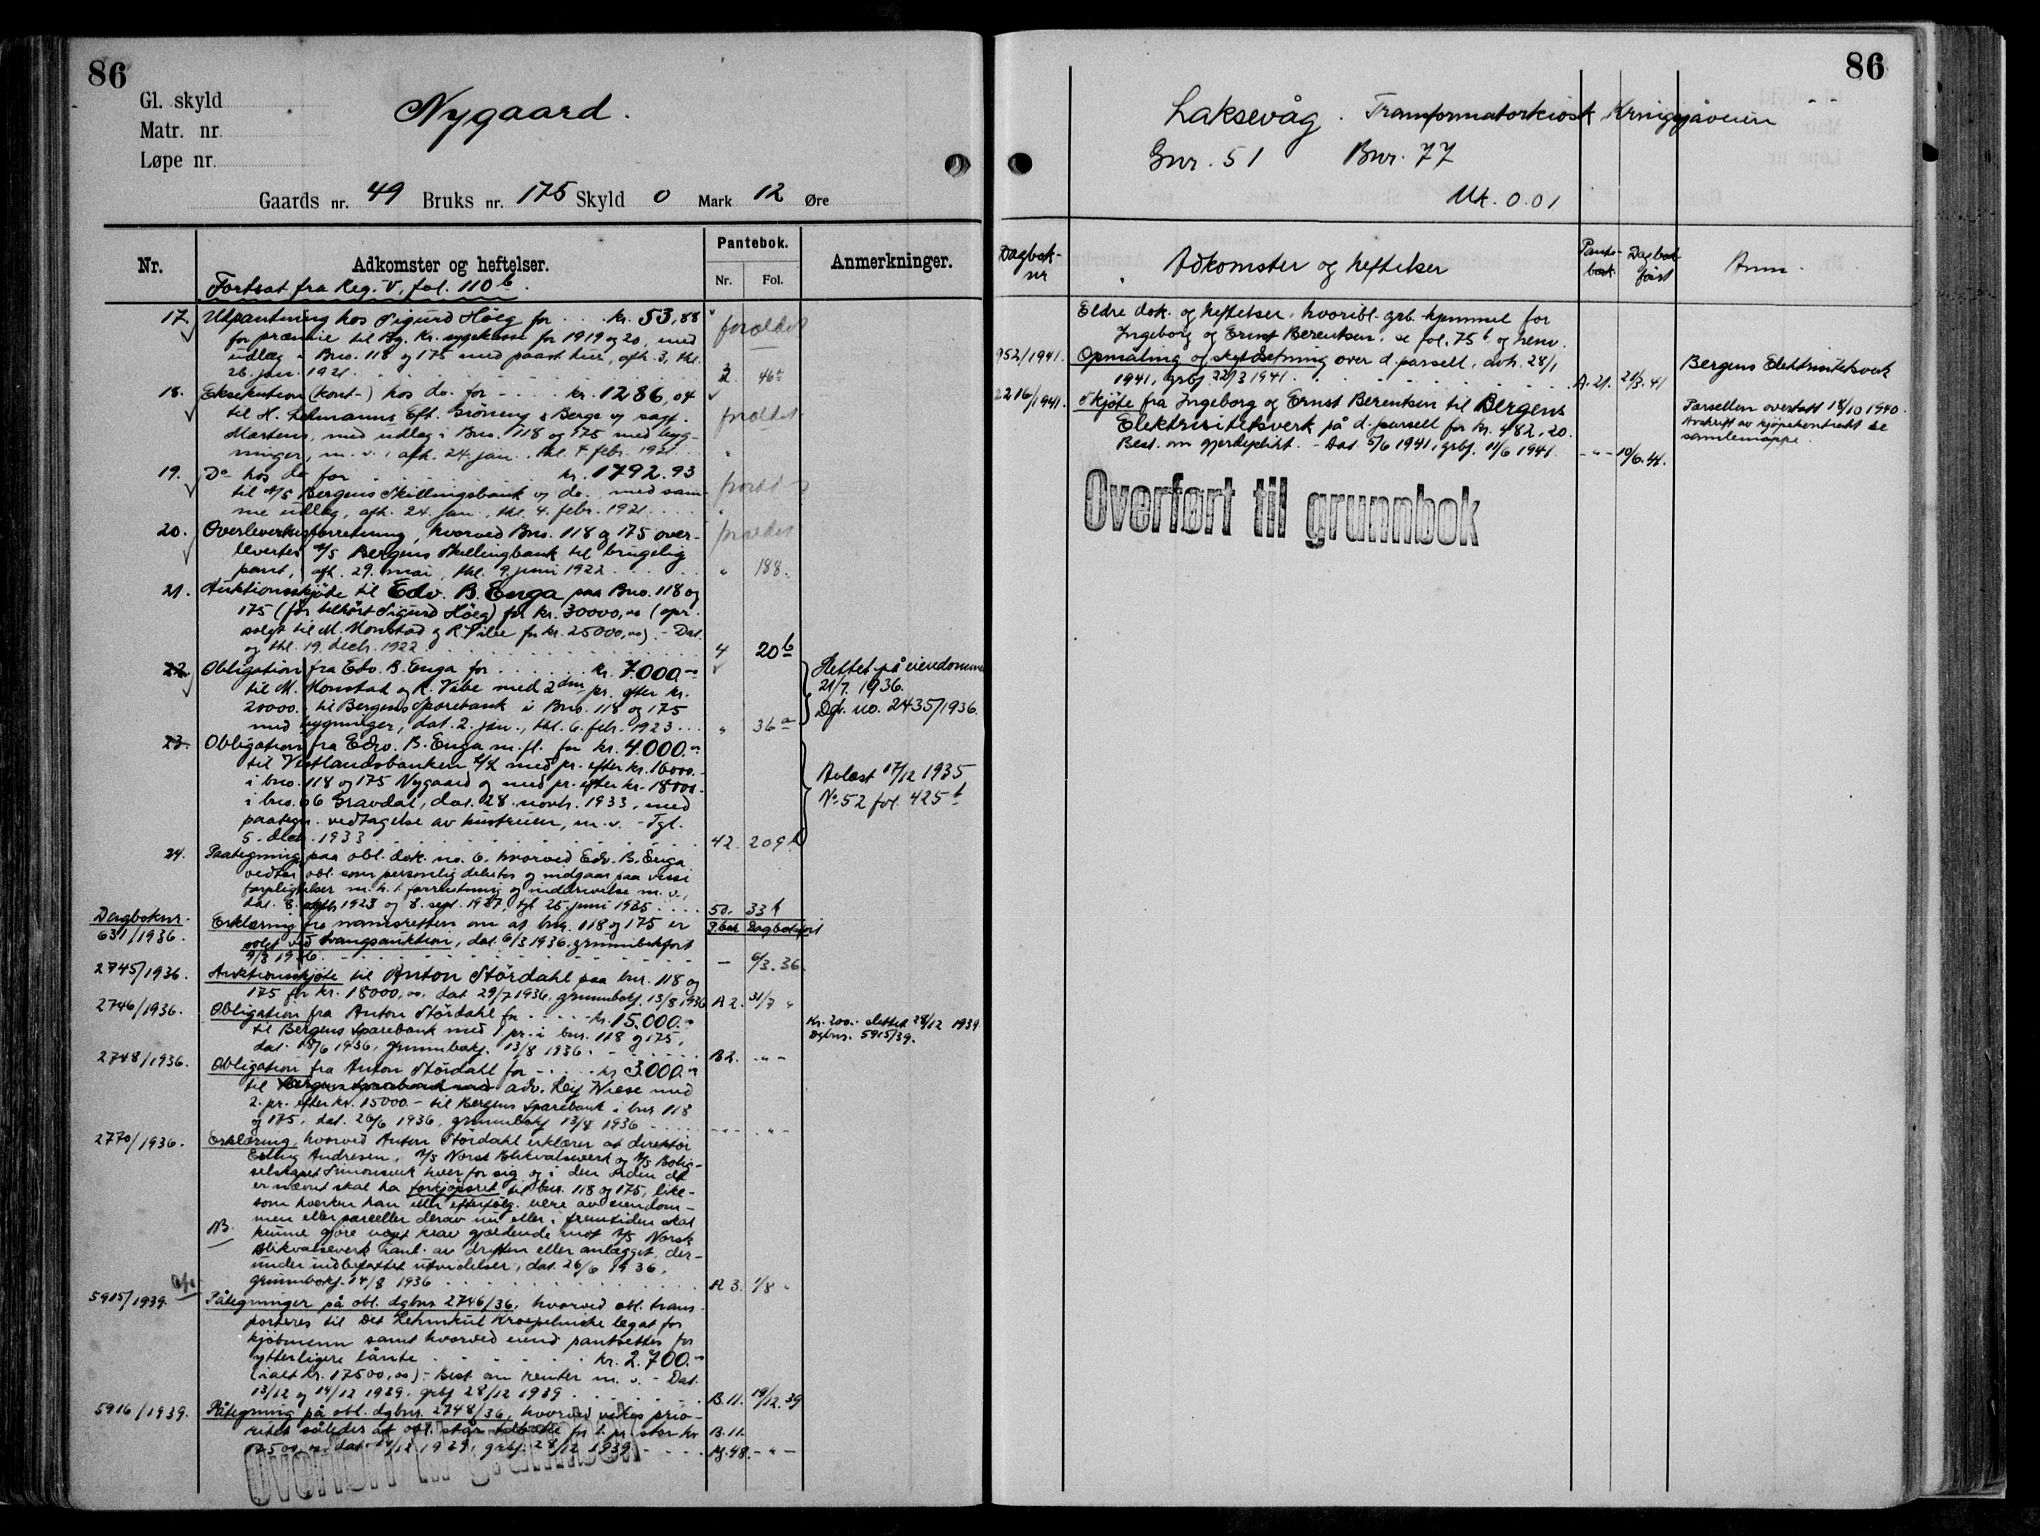 86
Gl. skyld
Matr. nr.
Løpe nr.
Nygaard.
Gaards nr. 49 Bruks nr. 175 Skyld 0 Mark 12 Øre
Nr.
Adkomster og heftelser.
Pantebok.
Nr. Fol.
Anmerkninger.
Fortsat fra Reg. V, fol. 110 b.
17. Utpantning hos Sigurd Höeg for kr. 53,88
for præmie til Bg. Kr. sygekasse for 1919 og 20, med
udlæg i Bno. 118 og 175 med paast. hus, afh. 3, thl.
26. jan. 1921 46
forældet
18. Eksekution (kont.) hos do. for kr. 1286,04
til H. Lehmanns Eft. Gröning & Berge og sagf.
Martens, med udlæg i Bno. 118 og 175 med byg-
ninger, m. v., afh. 24. jan., thl. 4 febr. 1921
forældet
19. Do hos do for kr. 1792.93
til A/S Bergens Skillingsbank og do., med sam-
me udlæg, afh. 24. jan., thl. 4. febr. 1921
20. Overleverkesforretning, hvorved Bno. 118 og 175 over-
levertes A/S Bergens Skillingbank til brugelig
pant, afh. 29. mai, thl. 9. juni 1922 " 188.
21. Auktionsskjöte til Edv. B. Enga paa Bno. 118 og
175 (før tilhørt Sigurd Höeg) for kr. 30000,00 (opr.
solgt til M. Monstad og R. Vibe for kr. 25000,00). - Dat.
og thl. 19. decb. 1922 4 20 b
22. Obligation fra Edv. B. Enga for kr. 7.000.-
til M. Monstad og R. Vibe med 2den pr. efter kr.
20000.- til Bergens Sparebank i Bno. 118 og 175
med bygninger, dat. 2. jan., thl. 6. febr. 1923 " 36 a
Slettet på eiendommen
21/7. 1936.
Dgb. no. 2435/1936.
23. Obligation fra Edv. B. Enga m. fl. for kr. 4.000.-
til Vestlandsbanken A/L med pr. efter kr. 16000.-
i bno. 118 og 175 Nygaard og med pr. efter kr. 18000.-
i bno. 66 Gravdal, dat. 28. novb. 1933, med
paategn. vedtagelse av hustruen, m. v. - Tgl.
5. decb. 1933 42. 209 b
Avlæst 17/12 1935
No. 52 fol. 425 b
24. Paategning paa obl. dok. no. 6. hvorved Edv. B. Enga
vedtar obl. som personlig debitor og indgaar paa visse
forpligtelser m. h. t. forrentning og inddrivelse m. v.,
dat. 8. 1923 og 8. sept. 1927, tgl. 25. juni 1935 50. 33 b
Dagboknr.
P.bok Dagbokført
631/1936. Erklæring fra namsretten om at bnr. 118 og 175 er
solgt ved tvangsauktion, dat. 6/3 1936. grunnbokført
9/3 1936. — 6/3. 36.
2745/1936. Auktionsskjøte til Anton Størdahl paa bnr. 118 og
175 for kr. 18000,00, dat 29/7 1936, grunnbokf. 13/8 1936 A 2. 31/7 "
2746/1936. Obligation fra Anton Størdahl for kr. 15.000.-
til Bergens Sparebank med 1 pr. i bnr. 118 og 175,
dat. 18/6 1936, grunnbokf. 13/8 1936. B 2. - " -
Kr. 200.- slettet 28/12 1939
Dgbnr. 5915/39.
2748/1936. Obligation fra Anton Størdahl for kr 3.000.-
til Bergens Sparebank med adv. Leif Wiese med
2. pr. efter kr. 15000.- til Bergens Sparebank i bnr 118
og 175, dat. 26/6 1936, grunnbokf 13/8 1936
2770/1936. Erklæring, hvorved Anton Størdahl erklærer at direktør
Erling Andresen, A/S Norsk Blikvalseverk og A/S Bolig-
selskapet Simonsvik hver for sig og i den orden de
er nævnt skal ha forkjøpsret til bnr. 118 og 175, like-
som hverken han eller efterfølg. eiere av eiendom-
men eller parceller derav nu eller i fremtiden skal
NB. kunne gjøre noget krav gjældende mot A/S Norsk
Blikvalseverk i anl. av driften eller anlægget, der-
under indbefattet utvidelser, dat. 26/6 1936,
grunnbokf. 14/8 1936 A 3. 1/8 "
5915/1939. Påtegninger på obl. dgbnr 2746/36, hvorved obl. trans-
porteres til Det Lehmkul Kroepelinske legat for
kjøbmenn samt hvorved eiend pantsettes for
ytterligere lånte kr. 2.700.-
(ialt kr. 17500,00). - Best om renter m. v. - Dat.
13/12 og 14/12 1939. grbf 28/12 1939 B. 11. 19/12. 39
5916/1939. Påtegning på obl. dgbnr. 2748/36, hvorved vikes prio-
ritet således at obl. står tilbake for 1. pr. stor kr B. 11.
17500,00 dat. 14/12 1939, grbf. 28/12 1939 M. 48. - " -
Overført til grunnbok
86
Laksevåg. Transformatorkiosk
Gnr. 51 Bnr. 77
Mk. 0.01
Dagbok-
nr
Adkomster og heftelser
Pante-
bok
Dagbok
ført
Anm.
Eldre dok. og heftelser, hvoribl. grb. hjemmel for
Ingeborg og Ernst Berentsen, se fol. 75 b og henv.
952/1941. Opmåling og skyldsetning over d. parsell, avh. 28/1
1941, grbf 22/3 1941. A. 21. 21/3. 41
Bergens Elektrisitetsverk
2216/1941. Skjøte fra Ingeborg og Ernst Berentsen til Bergens
Elektrisitetsverk på d. parsell for kr. 482,20.
Best. om gjerdeplikt. - Dat 5/6 1941, grbf. 11/6 1941. - " - 10/6. 41.
Parsellen overtatt 18/10 1940.
Avskrift av kjøpekontrakt se
samlemappe.
Overført til grunnbok